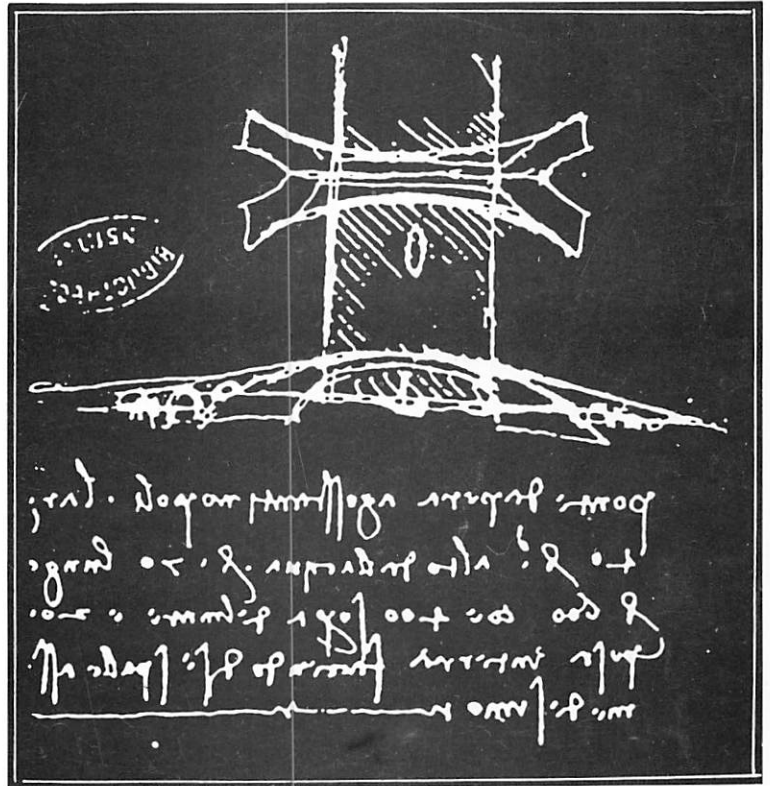 ponte da pera a gosstantinopoli
40 br alto dallacqua br 70 lungo
br 600 coe 400 sopra del mare e 200
posa in terra facendo di se spalle a ss
medesimo